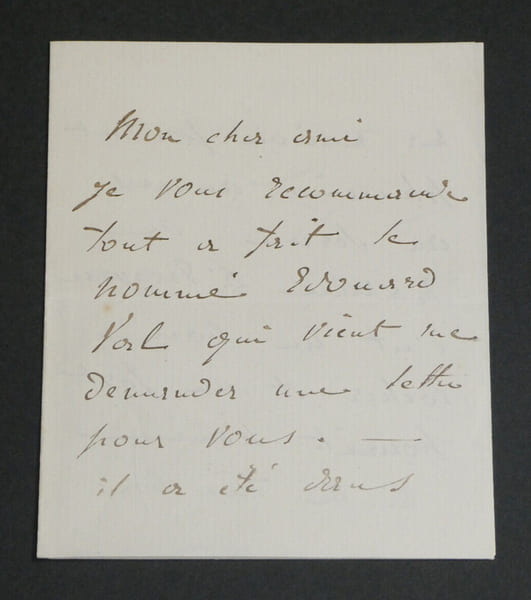 Mon cher ami
je vous recommande
tout a fait le
nommé Edouard
qui vient me
demander une lettre
pour vous. —
il a été dans